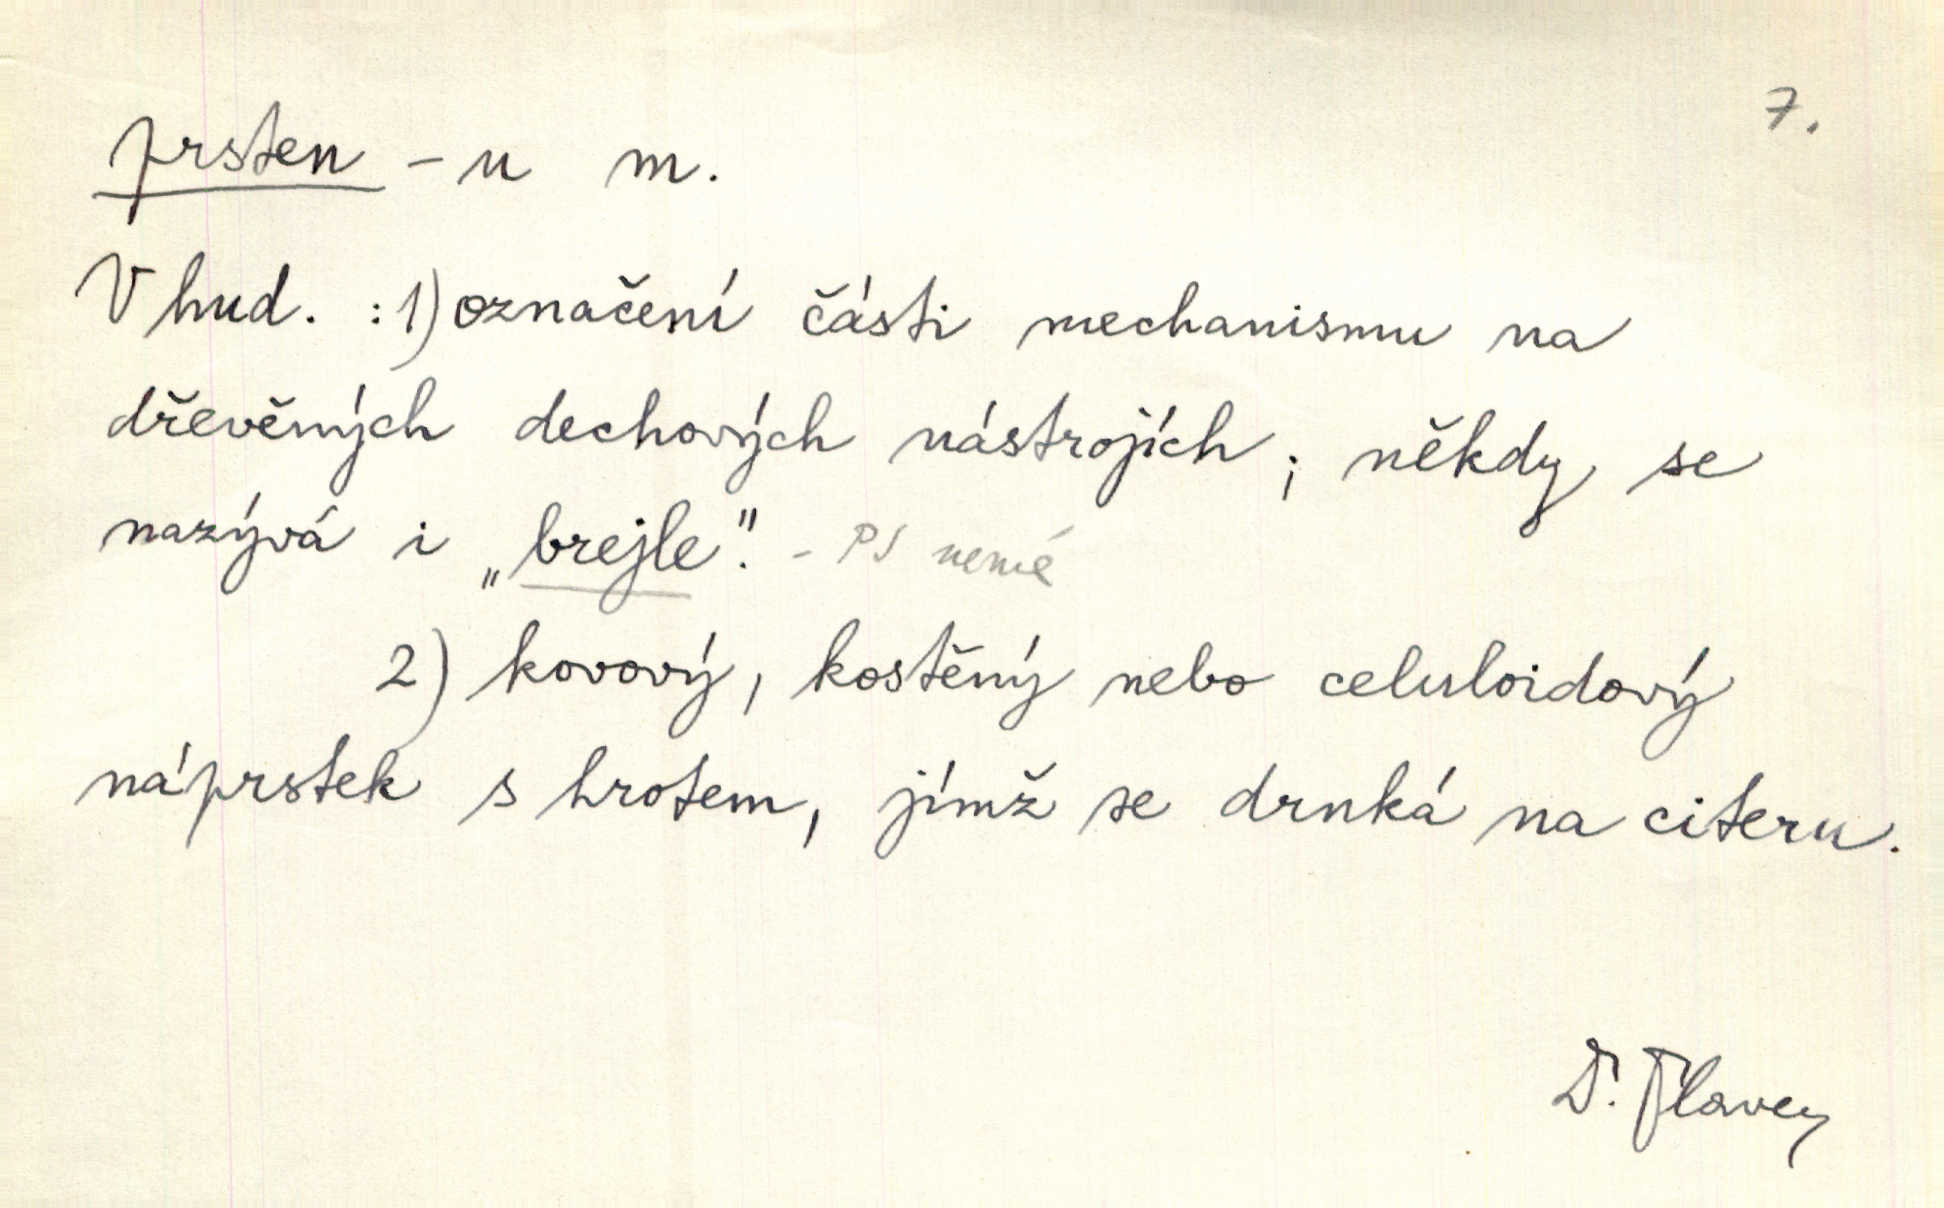 7.
prsten -u m.
V hud. : 1) označení části mechanismu na
dřevěných dechových nástrojích ; někdy se
nazývá i „brejle". - PS nemá
2) kovový, kostěný nebo celuloidový
náprstek s hrotem, jímž se drnká na citeru.